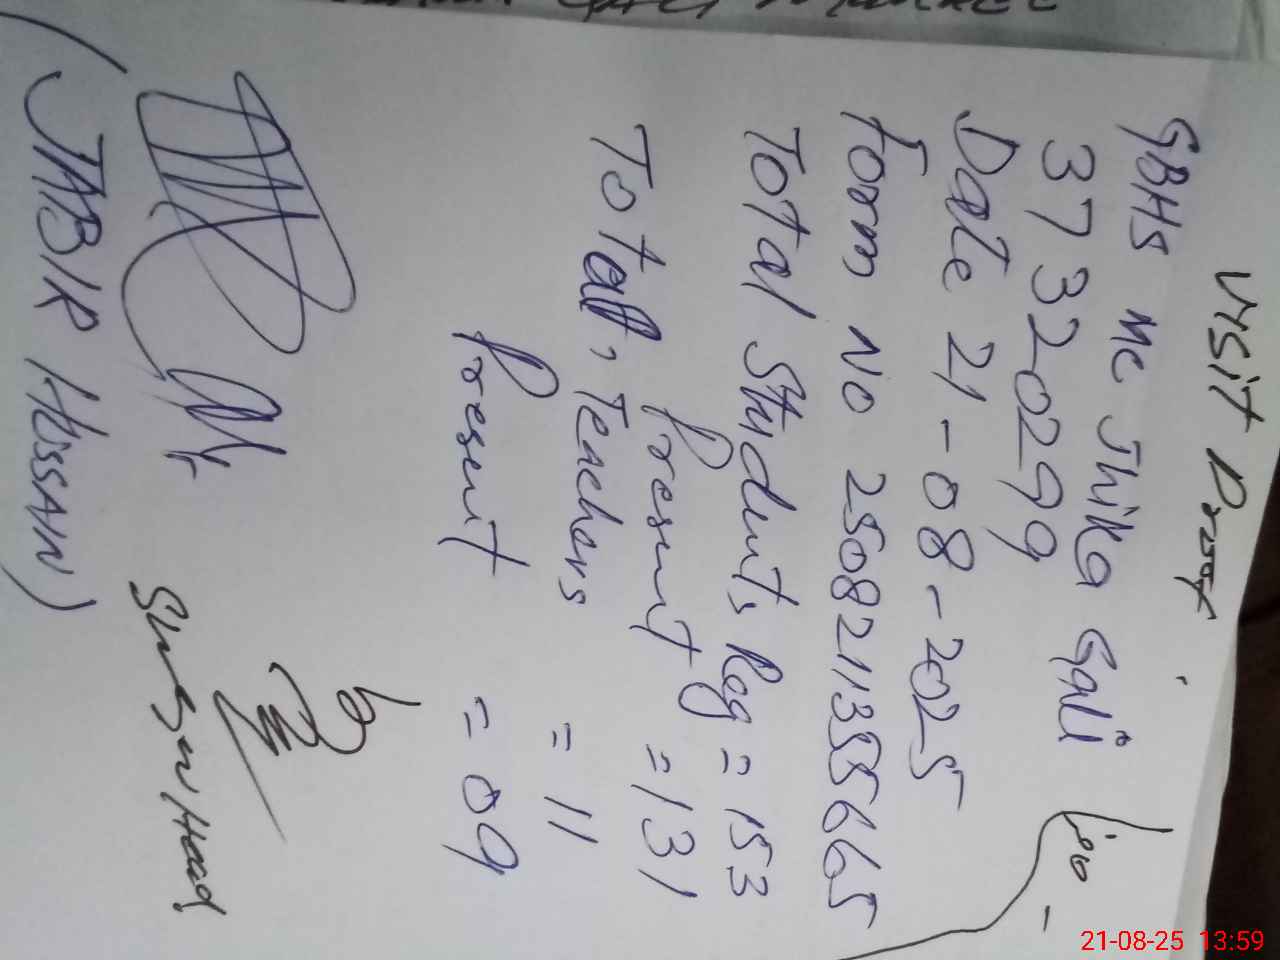 Visit Proof
GBHS Mc Jhika Gali
37320299
Date 21-08-2025
Form No 2508211355665
Total Students Reg = 153
Present = 131
Total, Teachers = 11
Present = 09
(JABIR HUSSAIN)
21-08-25 13:59